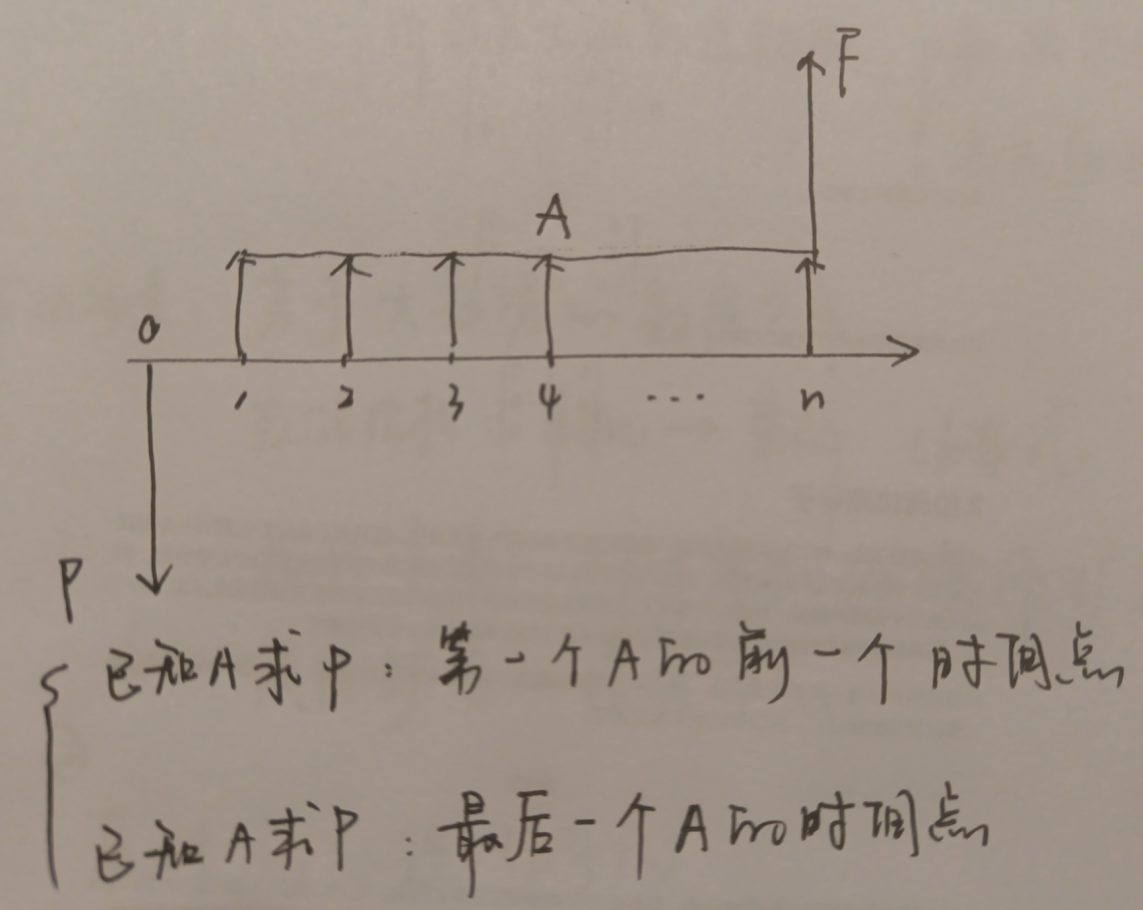 F
A
0
1 2 3 4 ... n
P
已知A求P：第一个A的前一个时间点
已知A求P：最后一个A的时间点